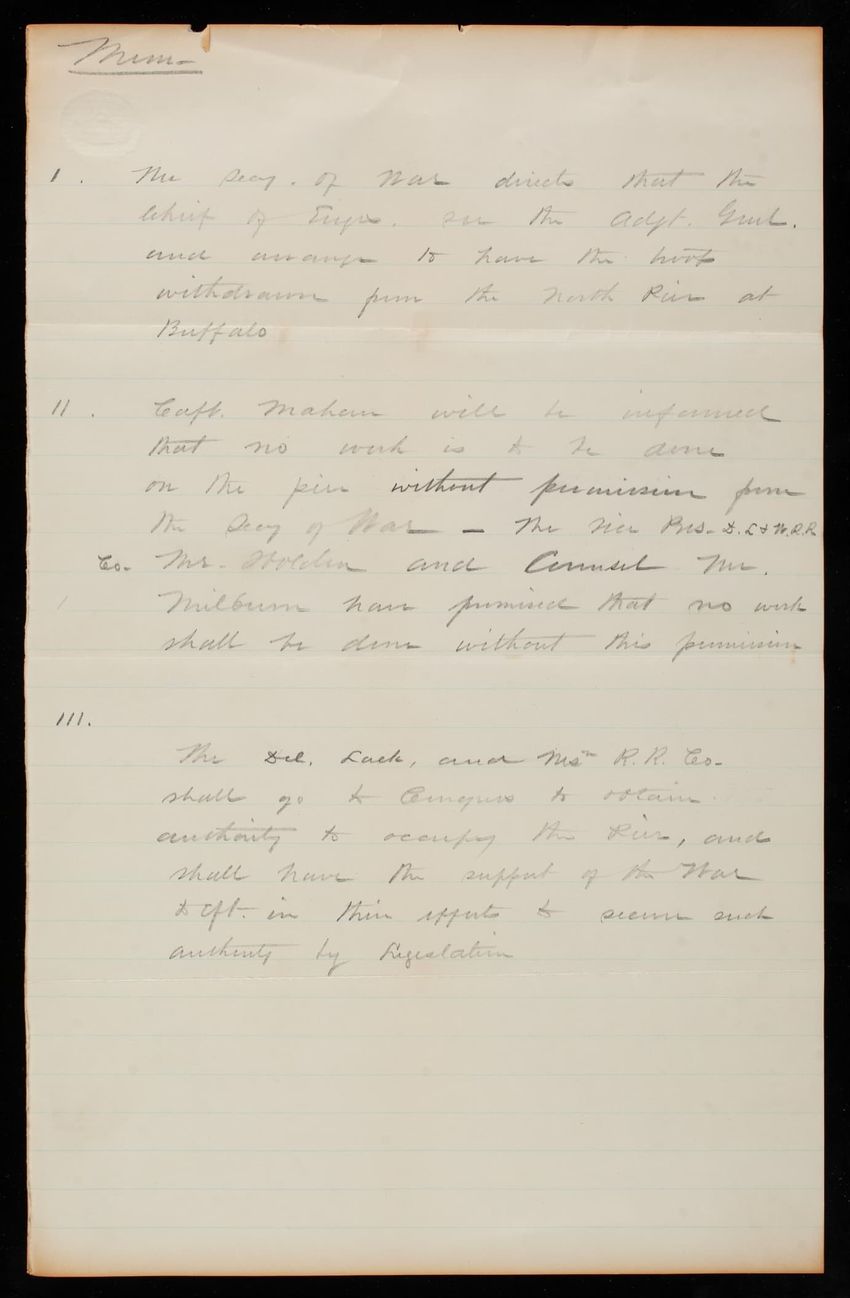 Mem-
I. The Secy. of War directs that the
Chief of Engrs. see the Adgt. Genl.
and arrange to have the troops
withdrawn from the North Pier at
Buffalo
II. Capt. Mahan will be informed
that no work is to be done
on the pier without permission from
the Secy of War — The Vice Pres. D. L & W. R. R
Co. Mr. Holden and Counsel Mr.
Milburn have promised that no work
shall be done without this permission
III.
The Del. Lack, and Wsn R. R. Co.
shall go to Congress to obtain
authority to occupy the Pier, and
shall have the support of the War
Dept. in their efforts to secure such
authority by Legislation